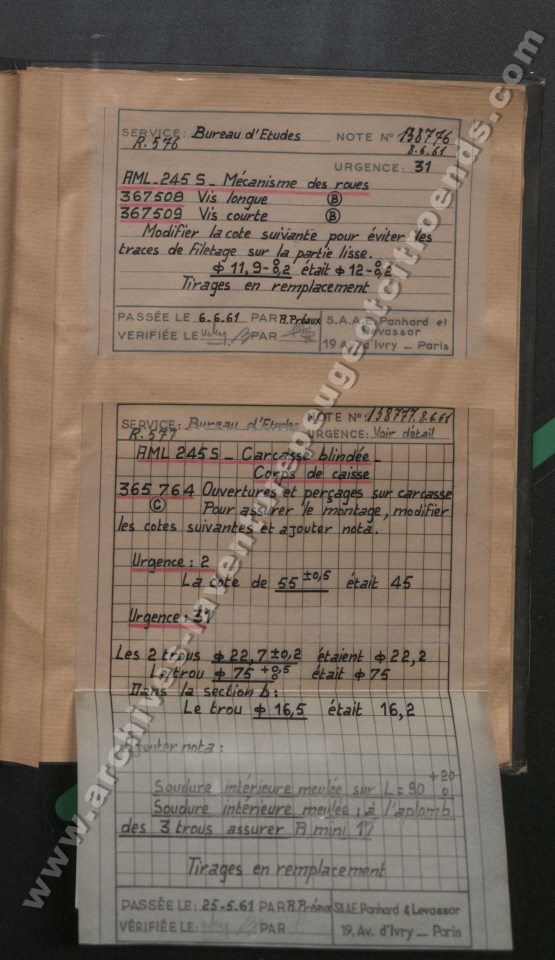 SERVICE: Bureau d'Etudes NOTE N° 138776
R.576 8.6.61
URGENCE: 31
AML.245 S_ Mécanisme des roues
367508 Vis longue B
367509 Vis courte B
Modifier la cote suivante pour éviter les
traces de filetage sur la partie lisse.
ϕ 11,9-0/0,2 était ϕ 12-0/0,2
Tirages en remplacement
PASSÉE LE 6.6.61 PAR R.Préaux S.A.A.E. Panhard et
Levassor
VERIFIÉE LE PAR 19 Av. d'Ivry _ Paris
SERVICE: Bureau d'Etudes NOTE N° 138777.8.6.61
R.577 URGENCE: Voir détail
AML 245 S _ Carcasse blindée _
Corps de caisse
365 764 Ouvertures et perçages sur carcasse
C Pour assurer le montage, modifier
les cotes suivantes et ajouter nota.
Urgence : 2
La cote de 55 ±0,5 était 45
Urgence : 31
Les 2 trous ϕ 22,7 ±0,2 étaient ϕ 22,2
Le trou ϕ 75 +0,5/0 était ϕ 75
Dans la section b :
Le trou ϕ 16,5 était 16,2
Ajouter nota :
Soudure intérieure meulée sur L = 90 +20/0
Soudure intérieure meulée ; à l'aplomb
des 3 trous assurer R mini 17
Tirages en remplacement
PASSÉE LE: 25-5.61 PAR R.Préaux S.A.A.E. Panhard & Levassor
VÉRIFIÉE LE: PAR 19, Av. d'Ivry _ Paris
www.archives-laventurepeugeotcitroends.com